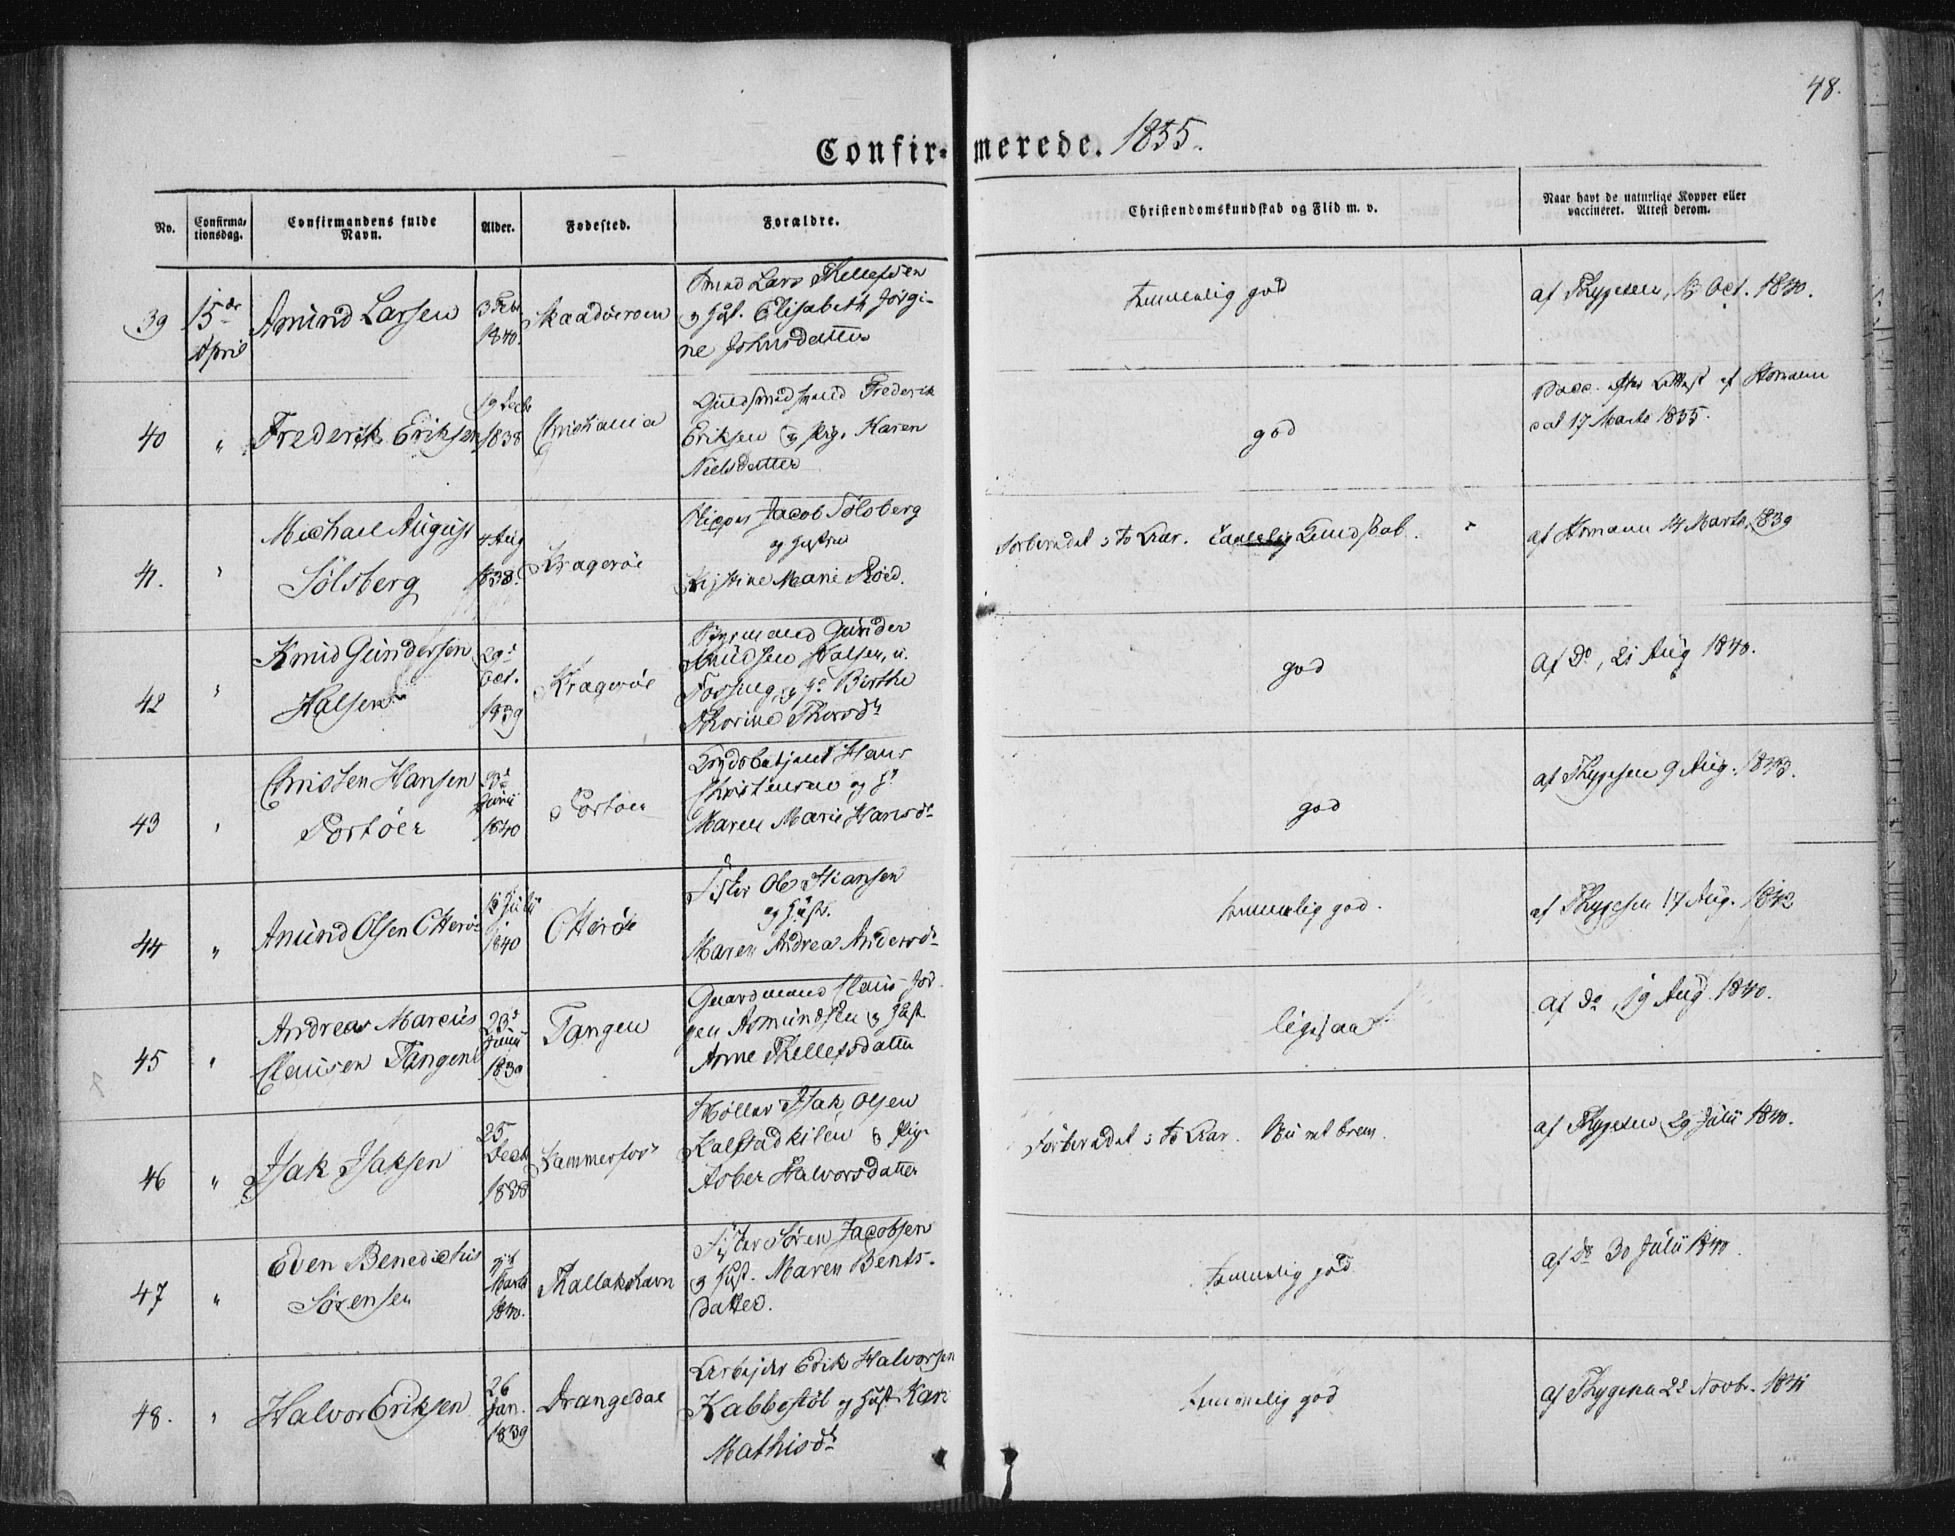 48.
Confirmerede. 1855.
No.
Confirmationsdag.
Confirmandens fulde Navn.
Alder.
Fødested.
Forældre.
Christendomskundskab og Flid m. v.
Naar havt de naturlige Kopper eller vaccineret. Attest derom.
39
15de April
Amund Larsen
3 Febr 1840.
Lars Thellefsen
og Hust. Elisabeth Jørgi-
ne Johnsdatter
temmelig god
af Thygesen, 13 Oct. 1840.
40
"
Frederik Eriksen
19 Decbr 1838
Christiania
Guldsmedsvend Frederik
Eriksen og Pig. Karen
Nielsdatter
god
Vacc. efter Attest af Homann
dat 17 Marts 1855.
41.
"
Michael August
Sølsberg
4 Aug 1838.
Kragerøe
Skipper Jacob Sølsberg
og Hustru
Kistine Marie Röed.
Forberedet i to Aar. Taalelig Kundskab.
af Homann 14 Marts 1839
42
"
Knud Gundersen
Halsen
29de Oct. 1839
Kragerøe
Byemand Gunder
Knudsen Halsen, u.
og Hu Birthe
Thorine Thorsdtr
god
af Do, 21 Aug 1840.
43
"
Christen Hansen
Portöer
3de Junii 1840
Portöer
Hans
Christensen og Hu
Maren Marie Hansdtr
god
af Thygesen 9 Aug. 1843.
44
"
Amund Olsen Otterøe
13 Julii 1840
Otterøe
Fisker Ole Hansen
og Hust.
Maren Andrea Andersdtr
temmelig god.
af Thygesen 17 Aug. 1842
45
"
Andreas Marcus
Clausen Tangen
23de Junii 1839
Tangen
Gaardmand Claus Jør-
gen Asmundsen og Hust
Anne Thellefsdatter
ligesaa
af Do, 19 Aug. 1840.
46
"
Isak Isaksen
25 Decbr 1838
Kammerfos
Møller Isak Olsen
Kalstadkilen og Pige
Asber Halvorsdatter
Forberedet i to Aar.
af Thygesen 29 Julii 1840.
47
"
Even Benedictus
Sørensen
Marts 1840.
Thallakshavn
Fisker Søren Jacobsen
og Hust. Maren Bents-
datter.
temmelig god
af Do 30 Julii 1840.
48.
"
Halvor Eriksen
26 Jan. 1839
Drangedal
Arbejder Erik Halvorsen
Kabbestöl og Hust Kari
Mathisdtr
temmelig god
af Thygesen 22 Novbr. 1841